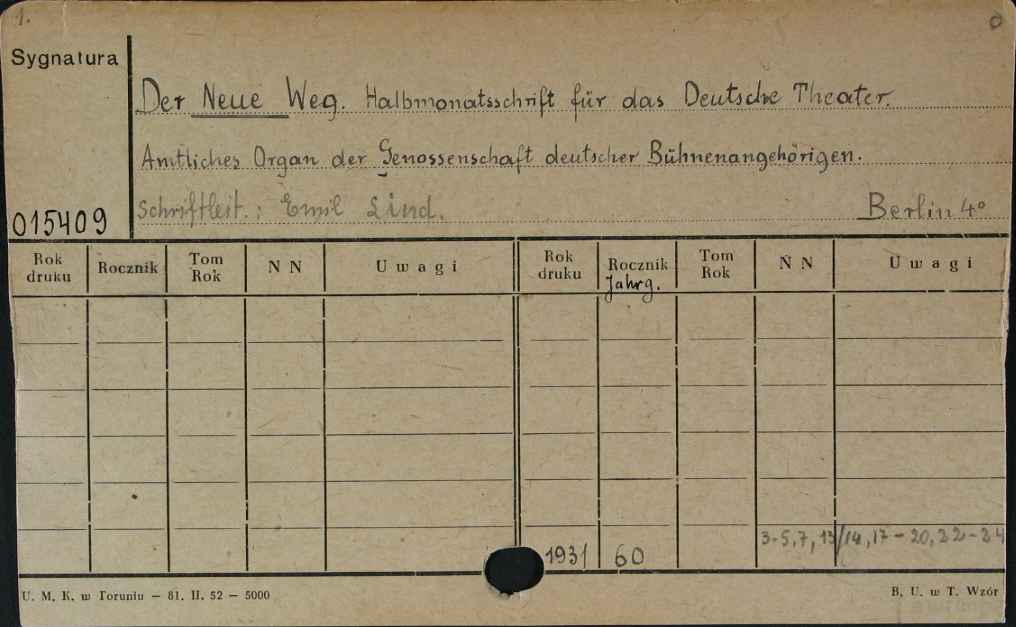 1.
0
Sygnatura
Der Neue Weg. Halbmonatsschrift für das Deutsche Theater.
Amtliches Organ der Genossenschaft deutscher Bühnenangehörigen.
Schriftleit.: Emil Lind. Berlin 4°
015409
Rok druku Rocznik Tom Rok N N Uwagi Rok druku Rocznik Tom Rok N N Uwagi
Jahrg.
3-5,7,13/14,17-20,22-24
1931 60
U. M. K. w Toruniu — 81. II. 52 — 5000 B. U. w T. Wzór